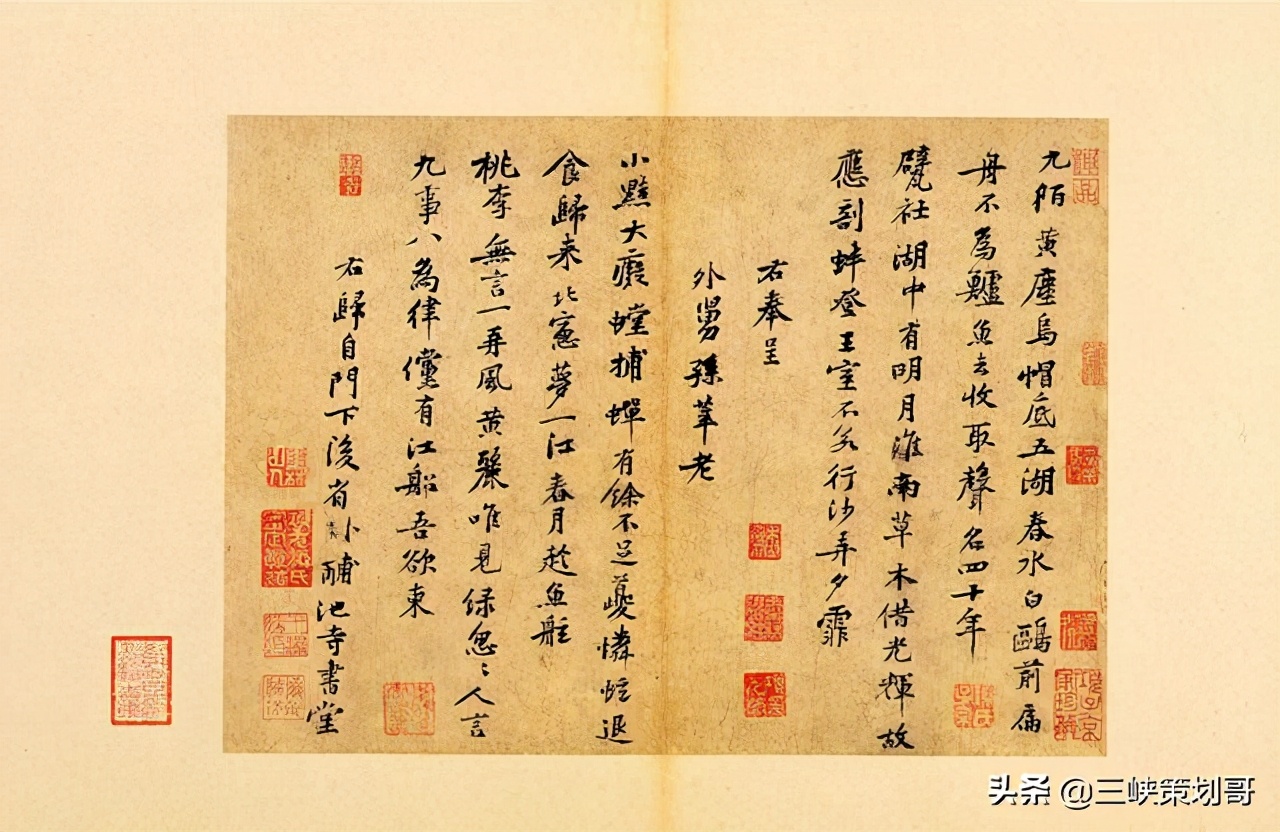 九陌黃塵烏帽底五湖春水白鷗前扁
舟不為鱸魚去收取聲名四十年
甓社湖中有明月淮南草木借光輝故
應剖蚌登王室不若行沙弄夕霏
右奉呈
外舅孫莘老
小黠大癡螳捕蟬有餘不足夔憐蚿退
食歸來北窻夢一江春月趁魚舡
桃李無言一再風黃鸝唯見綠怱〻人言
九事八為律儻有江船吾欲東
右歸自門下後省卧酺池寺書堂
头条 @三峡策划哥